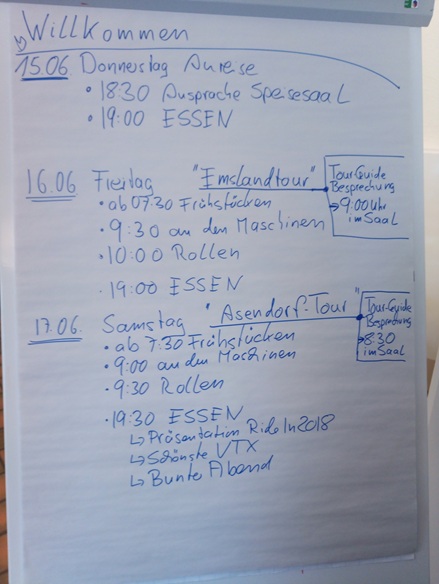 Willkommen
15.06 Donnerstag Anreise
• 18:30 Ansprache Speisesaal
• 19:00 ESSEN
16.06 Freitag "Emslandtour"
Tour-Guide
Besprechung
→ 9:00 Uhr
im Saal
• ab 07:30 Frühstücken
• 9:30 an den Maschinen
• 10:00 Rollen
• 19:00 ESSEN
17.06. Samstag "Asendorf-Tour"
Tour-Guide
Besprechung
→ 8:30
im Saal
• ab 7:30 Frühstücken
• 9:00 an den Maschinen
• 9:30 Rollen
• 19:30 ESSEN
↳ Präsentation RideIn2018
↳ Schönste VTX
↳ Bunter Abend